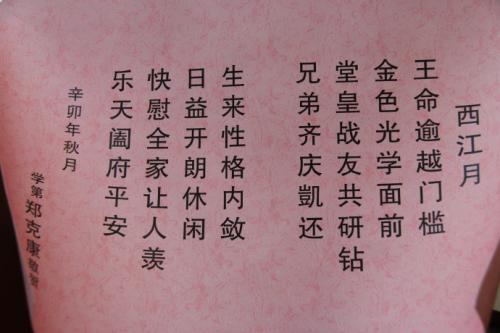 西江月
王命逾越门槛
金色光学面前
堂皇战友共研钻
兄弟齐庆凱还
生来性格内敛
日益开朗休闲
快慰全家让人羡
乐天阖府平安
辛卯年秋月
学第郑克康敬贺